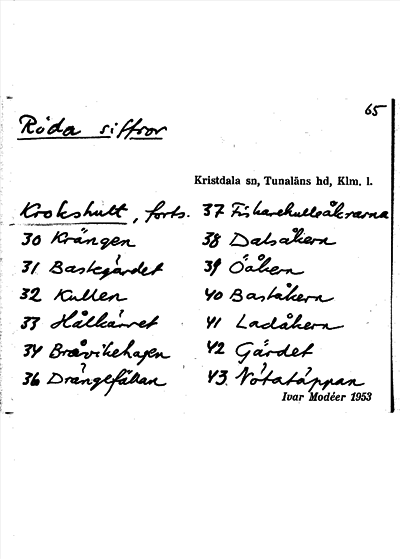 65
Röda siffror
Kristdala sn, Tunaläns hd, Klm. l.
Krokshult, forts.
30 Krängen
31 Bastegärdet
32 Kullen
33 Hålkärret
34 Bråvikehagen
36 Drängefällan
37 Fiskarekulleåkrarna
38 Dalsåkern
39 Öåkern
40 Baståkern
41 Ladåkern
42 Gärdet
43. Nötatäppan
Ivar Modéer 1953